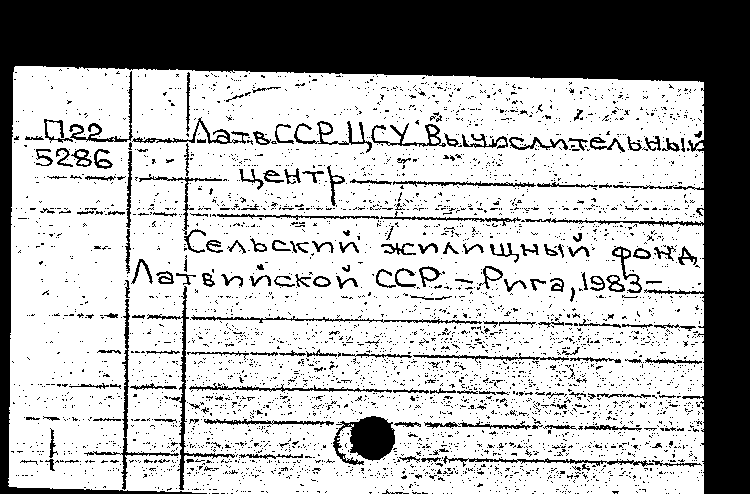 П22
5286
ЛатвССР ЦСУ Вычислительный
центр
Сельский жилищный фонд
Латвийской ССР - Рига, 1983-